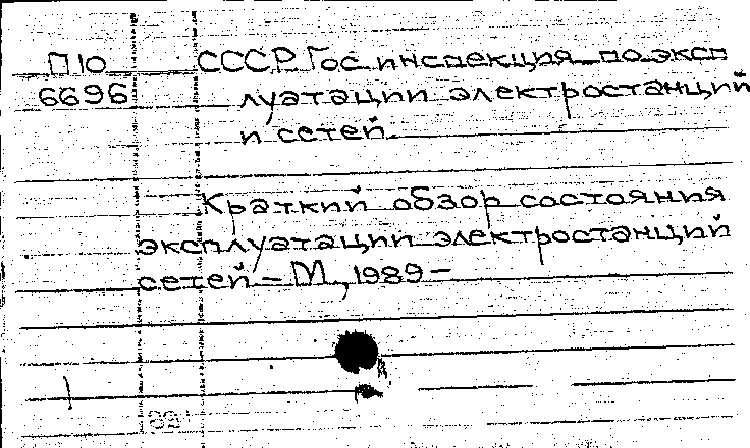 П10 СССР. Гос. инспекция по эксп
6696 луатации электростанций
и сетей.
Краткий обзор состояния
эксплуатации электростанций
сетей – М, 1989 –